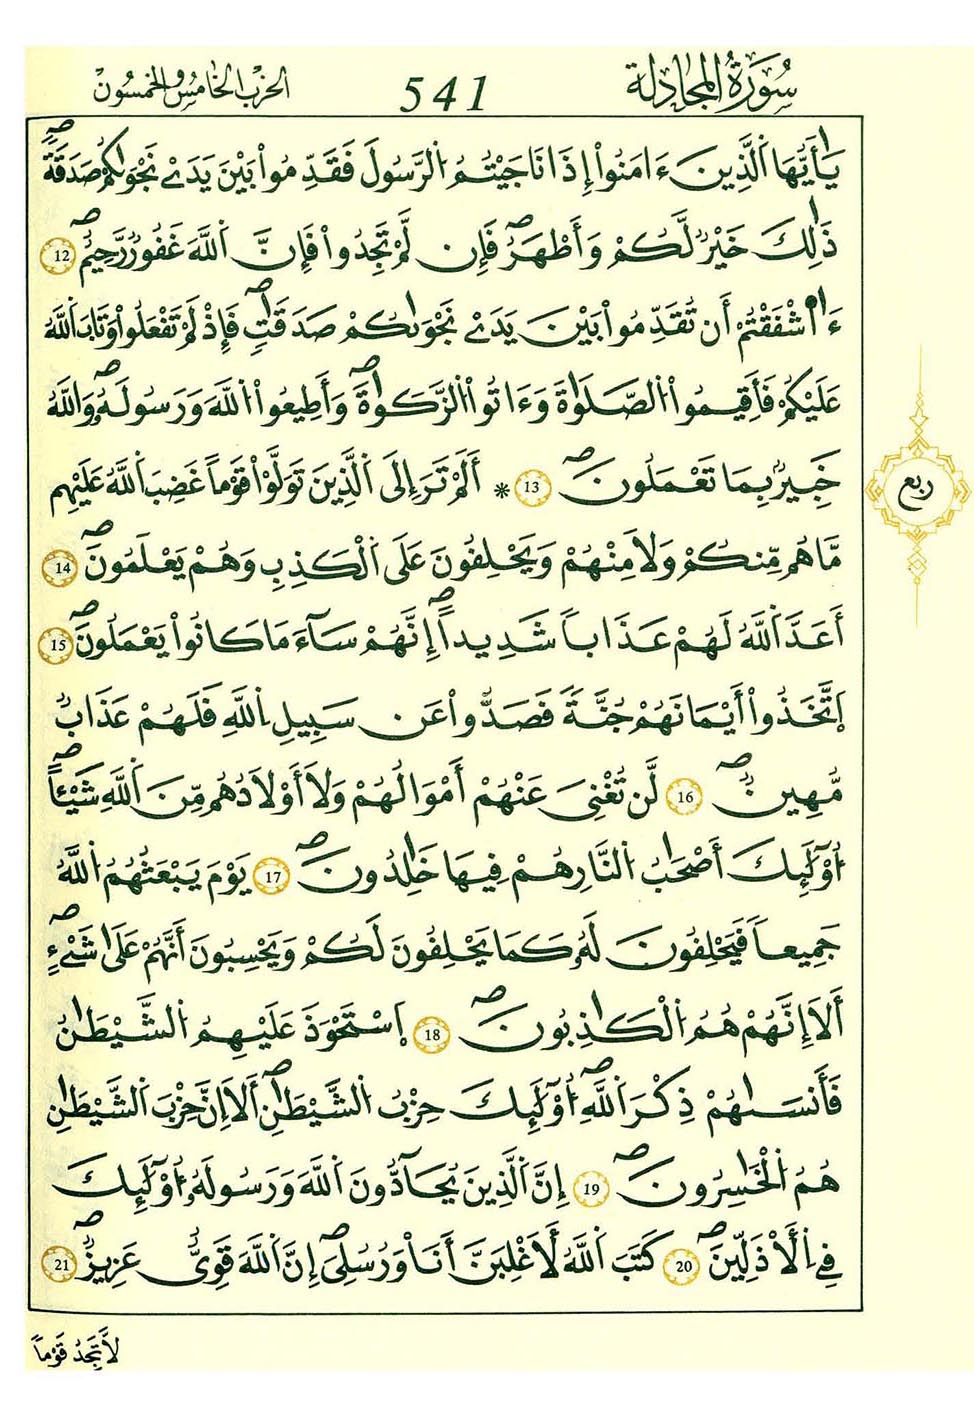 سُورَةُ المُجَادِلَة 541 الحزب الخامس والخمسون
يَٰأَيُّهَا اَ۬لذِينَ ءَامَنُوٓاْ إِذَا نَٰجَيْتُمُ اُ۬لرَّسُولَ فَقَدِّمُواْ بَيْنَ يَدَےْ نَجْوٰىكُمْ صَدَقَةٗۖ
ذَٰلِكَ خَيْرٞ لَّكُمْ وَأَطْهَرُۖ فَإِن لَّمْ تَجِدُواْ فَإِنَّ اَ۬للَّهَ غَفُورٞ رَّحِيمٌۖ 12
ءَاٰ۬شْفَقْتُمُۥٓ أَن تُقَدِّمُواْ بَيْنَ يَدَےْ نَجْوٰىكُمْ صَدَقَٰتٖۖ فَإِذْ لَمْ تَفْعَلُواْ وَتَابَ اَ۬للَّهُ
عَلَيْكُمْ فَأَقِيمُواْ اُ۬لصَّلَوٰةَ وَءَاتُواْ اُ۬لزَّكَوٰةَۖ وَأَطِيعُواْ اُ۬للَّهَ وَرَسُولَهُۥۖ وَاللَّهُ
خَبِيرُۢ بِمَا تَعْمَلُونَۖ 13 * أَلَمْ تَرَ إِلَى اَ۬لذِينَ تَوَلَّوْاْ قَوْماً غَضِبَ اَ۬للَّهُ عَلَيْهِم
مَّا هُم مِّنكُمْ وَلَا مِنْهُمْ وَيَحْلِفُونَ عَلَى اَ۬لْكَذِبِ وَهُمْ يَعْلَمُونَۖ 14
أَعَدَّ اَ۬للَّهُ لَهُمْ عَذَاباٗ شَدِيداًۖ إِنَّهُمْ سَآءَ مَا كَانُواْ يَعْمَلُونَۖ 15
اَ۪تَّخَذُوٓاْ أَيْمَٰنَهُمْ جُنَّةٗ فَصَدُّواْ عَن سَبِيلِ اِ۬للَّهِ فَلَهُمْ عَذَابٞ
مُّهِينٞۖ 16 لَّن تُغْنِيَ عَنْهُمُۥٓ أَمْوَٰلُهُمْ وَلَآ أَوْلَٰدُهُم مِّنَ اَ۬للَّهِ شَيْـٔاًۖ
اُ۟وْلَٰٓئِكَ أَصْحَٰبُ اُ۬لنَّارِ هُمْ فِيهَا خَٰلِدُونَۖ 17 يَوْمَ يَبْعَثُهُمُ اُ۬للَّهُ
جَمِيعاٗ فَيَحْلِفُونَ لَهُۥ كَمَا يَحْلِفُونَ لَكُمْ وَيَحْسِبُونَ أَنَّهُمْ عَلَىٰ شَےْءٍۖ
أَلَآ إِنَّهُمْ هُمُ اُ۬لْكَٰذِبُونَۖ 18 اَ۪سْتَحْوَذَ عَلَيْهِمُ اُ۬لشَّيْطَٰنُ
فَأَنسَىٰهُمْ ذِكْرَ اَ۬للَّهِۖ أُوْلَٰٓئِكَ حِزْبُ اُ۬لشَّيْطَٰنِۖ أَلَآ إِنَّ حِزْبَ اَ۬لشَّيْطَٰنِ
هُمُ اُ۬لْخَٰسِرُونَۖ 19 إِنَّ اَ۬لذِينَ يُحَآدُّونَ اَ۬للَّهَ وَرَسُولَهُۥٓ أُوْلَٰٓئِكَ
فِے اِ۬لَاذَلِّينَۖ 20 كَتَبَ اَ۬للَّهُ لَأَغْلِبَنَّ أَنَا۠ وَرُسُلِيَۖ إِنَّ اَ۬للَّهَ قَوِيٌّ عَزِيزٞۖ 21
ربع
لَّا تَجِدُ قَوْماٗ